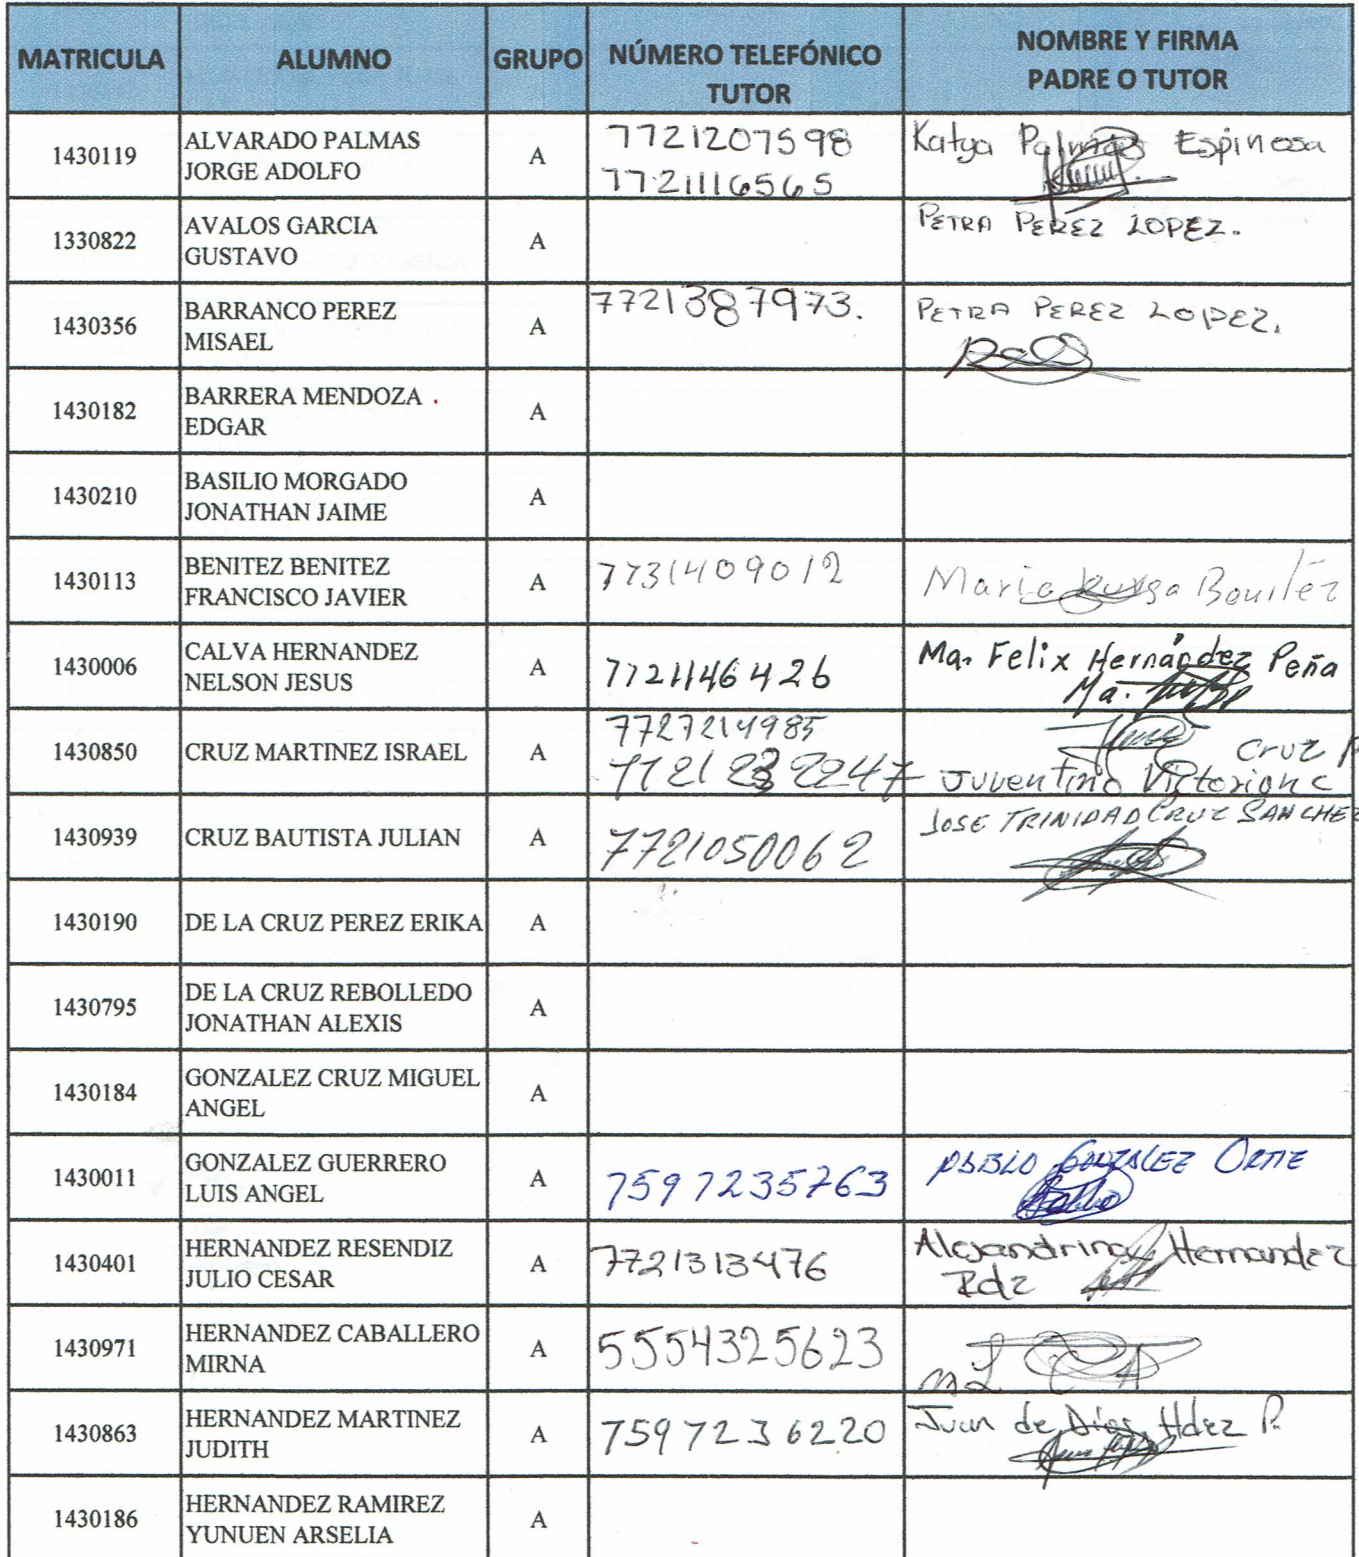 MATRICULA ALUMNO GRUPO NÚMERO TELEFÓNICO TUTOR NOMBRE Y FIRMA PADRE O TUTOR
1430119 ALVARADO PALMAS JORGE ADOLFO A 7721207598 7721116565 Katya Palmas Espinosa
1330822 AVALOS GARCIA GUSTAVO A PETRA PEREZ LOPEZ.
1430356 BARRANCO PEREZ MISAEL A 7721387973. PETRA PEREZ LOPEZ.
1430182 BARRERA MENDOZA EDGAR A
1430210 BASILIO MORGADO JONATHAN JAIME A
1430113 BENITEZ BENITEZ FRANCISCO JAVIER A 7731409012 Maria
1430006 CALVA HERNANDEZ NELSON JESUS A 7721146426 Ma. Felix Hernández Peña Ma.
1430850 CRUZ MARTINEZ ISRAEL A 7727214985 Cruz Juventino
1430939 CRUZ BAUTISTA JULIAN A 7721050062 JOSE TRINIDAD CRUZ SANCHEZ
1430190 DE LA CRUZ PEREZ ERIKA A
1430795 DE LA CRUZ REBOLLEDO JONATHAN ALEXIS A
1430184 GONZALEZ CRUZ MIGUEL ANGEL A
1430011 GONZALEZ GUERRERO LUIS ANGEL A 7597235763 PABLO GONZALEZ ORTIZ
1430401 HERNANDEZ RESENDIZ JULIO CESAR A 7721313476 Alejandrina Hernandez Rdz
1430971 HERNANDEZ CABALLERO MIRNA A 5554325623
1430863 HERNANDEZ MARTINEZ JUDITH A 7597236220 Juan de Dios Hdez P.
1430186 HERNANDEZ RAMIREZ YUNUEN ARSELIA A